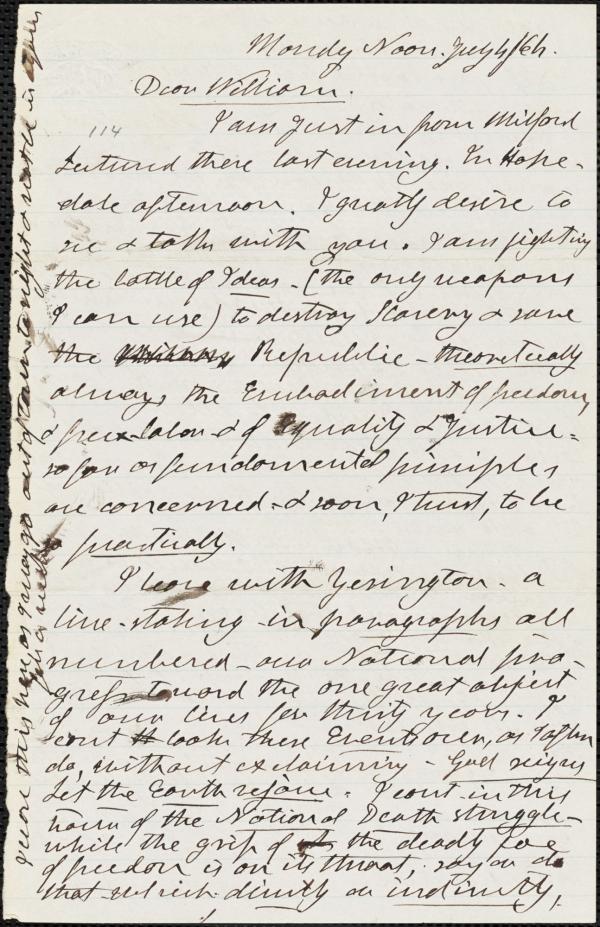 Monday Noon. July 4/64.
Dear William.
114
I am just in from Milford
Lectured there last evening. In Hope-
dale afternoon. I greatly desire to
see & talk with you. I am fighting
the battle of Ideas - (the only weapons
I can use) to destroy Slavery & save
the Republic - theoretically
always the Embodiment of freedom,
& free labor & of Equality & Justice -
so far as fundamental principles
are concerned - & soon, I trust, to be
so practically.
I leave with Yerington - a
line - stating - in paragraphs all
numbered - our National pro-
gress toward the one great object
of our lives for thirty years. I
cant look these Events over, as I often
do, without exclaiming - God reigns
Let the Earth rejoice. I cant in this
hour of the National Death struggle -
while the grip of the deadly foe
of freedom is on its throat, say or do
that which directly or indirectly,
I leave this here as I may go out of town to night &